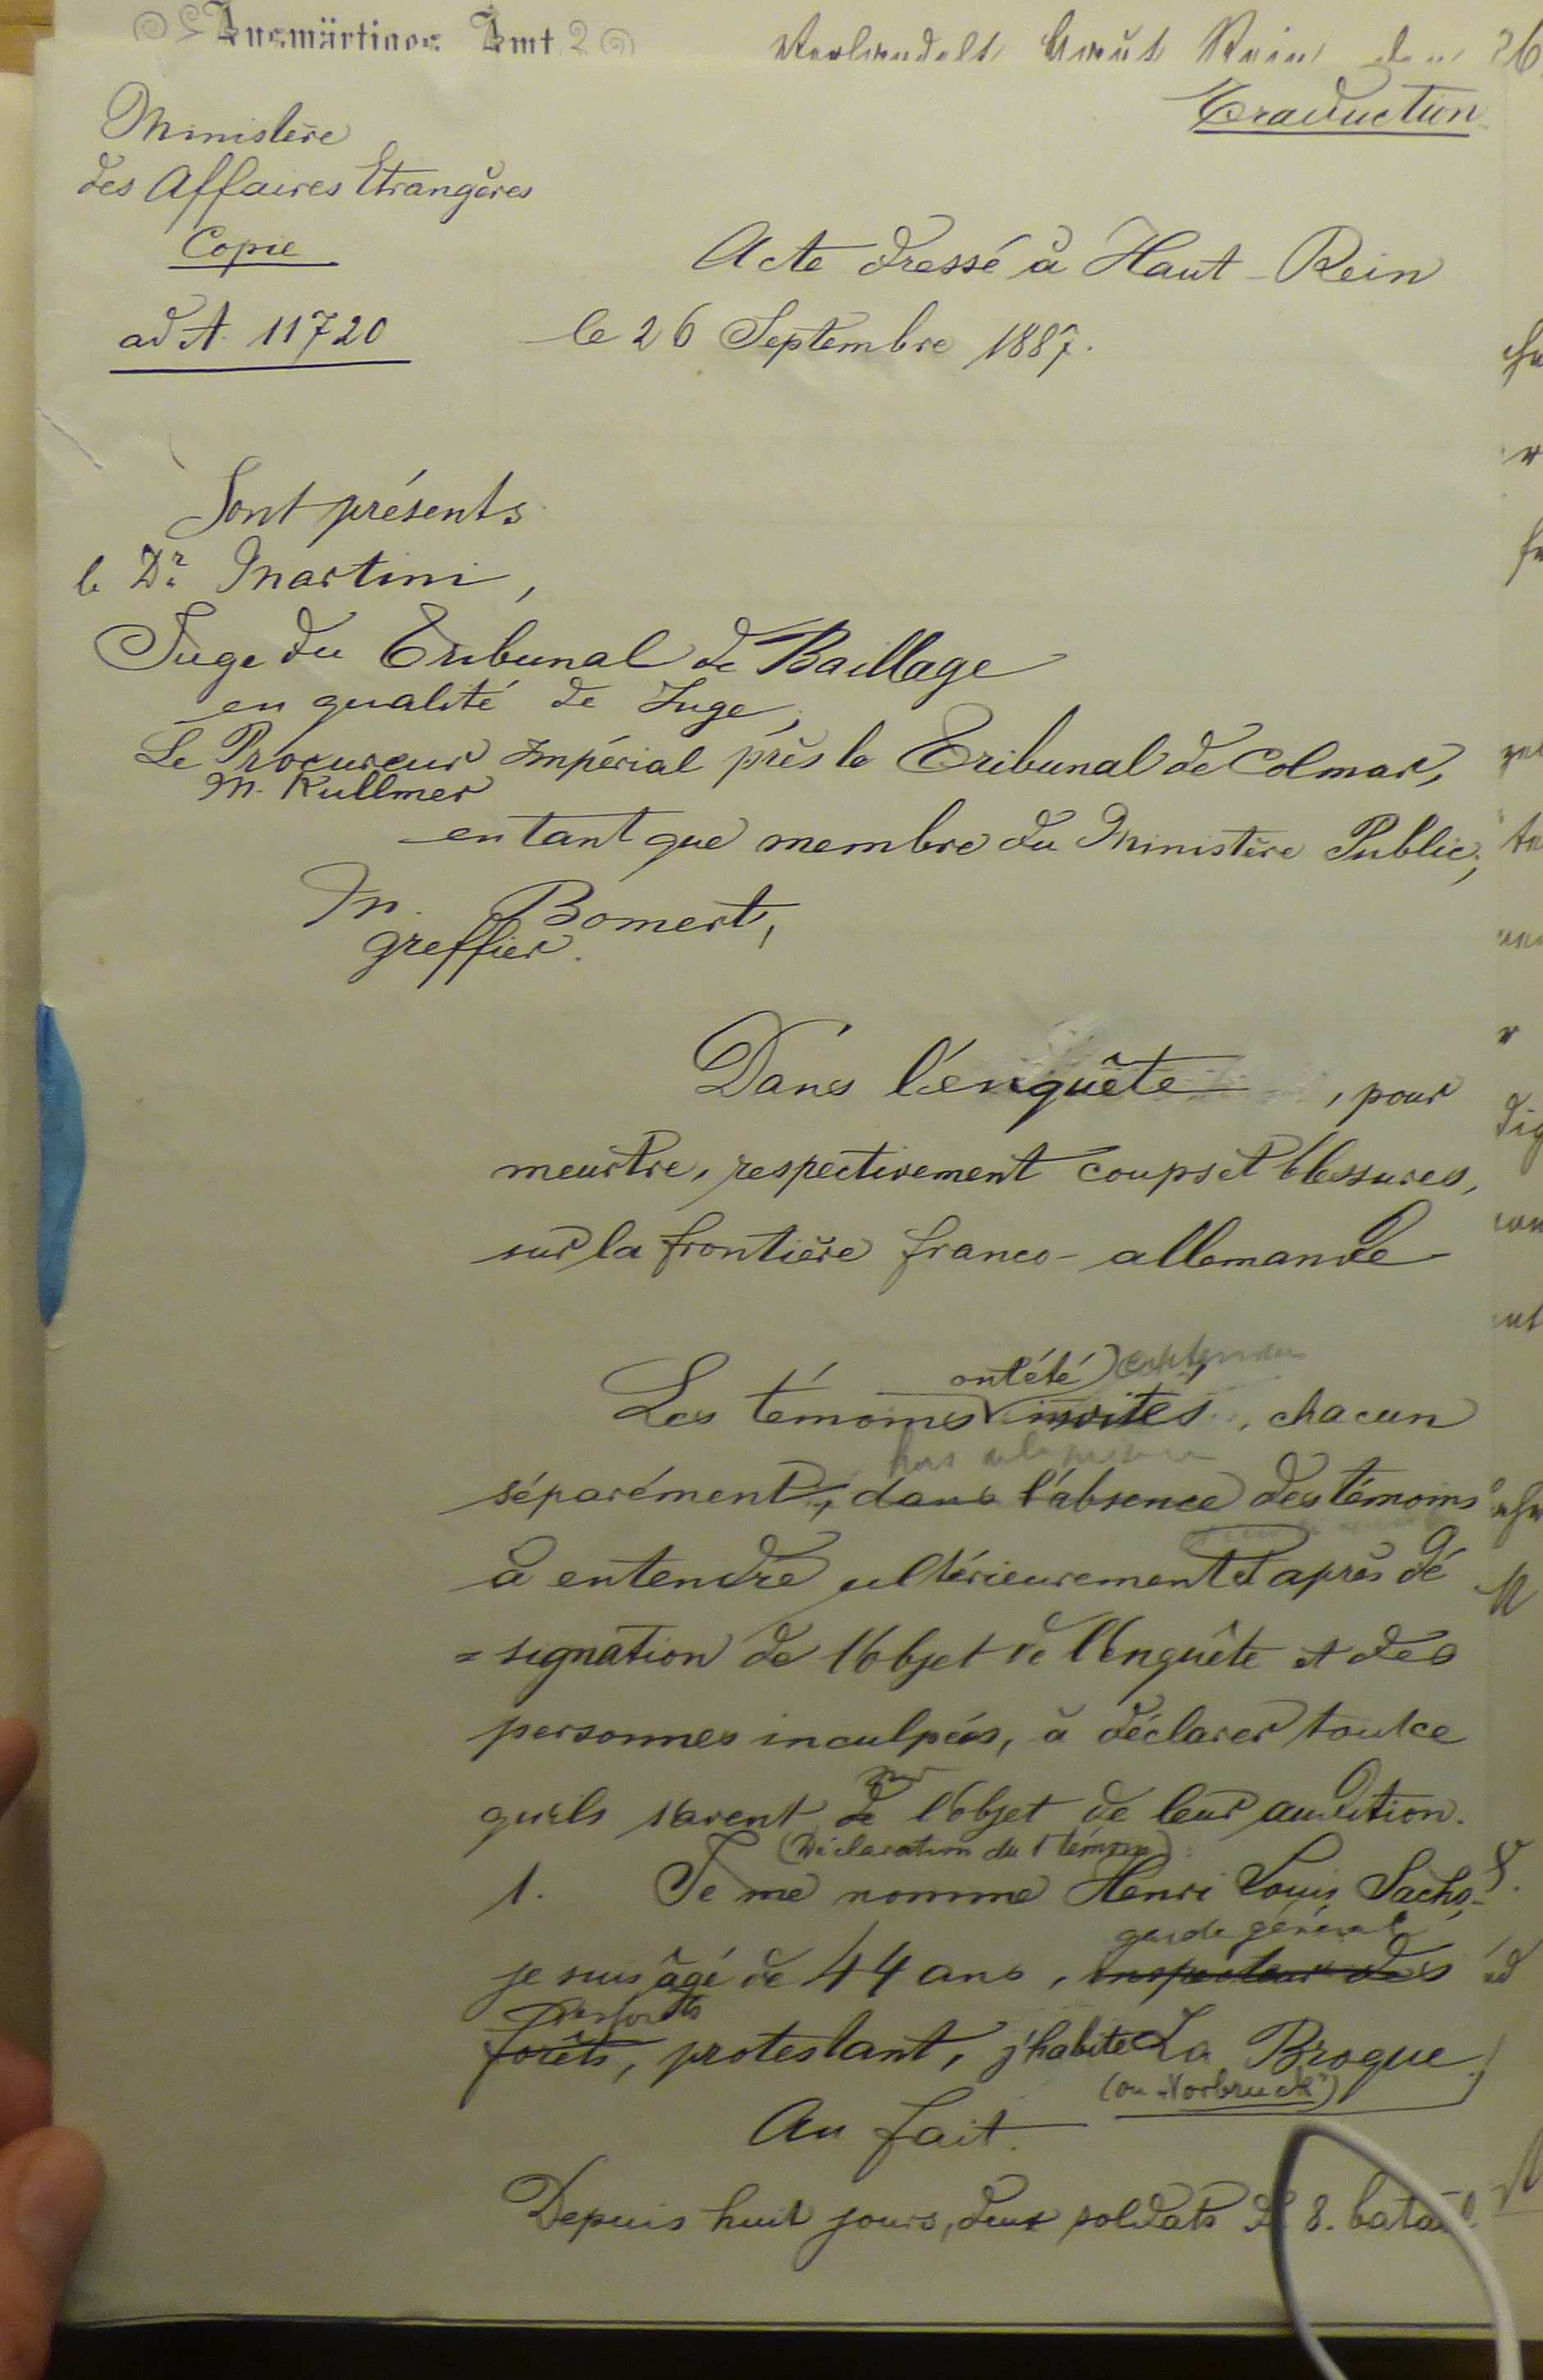 Auswärtiges Amt
Verhandelt Haut Rein den 26
Traduction
Ministère
des Affaires Etrangères
Copie
ad A. 11720
Acte dressé à Haut-Rein
le 26 Septembre 1887.
Sont présents
le Dr Martini,
Juge du Tribunal de Baillage
en qualité de Juge,
Le Procureur Impérial près le Tribunal de Colmar,
M. Kullmer
en tant que membre du Ministère Public,
M. Bomert,
greffier.
Dans l'enquête , pour
meurtre, respectivement coups et blessures,
sur la frontière franco-allemande
ont été
Les témoins invités, chacun
hors de la
séparément, dans l'absence des témoins
à entendre ultérieurement et après dé
=signation de l'objet de l'Enquête et des
personnes inculpées, à déclarer tout ce
qu'ils savent de l'objet de leur audition.
(Déclaration du 1 témoin)
1. Je me nomme Henri Louis Sachs,
garde général
je suis âgé de 44 ans, inspecteur des
des forêts
forêts, protestant, j'habite La Broque
(ou "Vorbruck")
Au fait.
Depuis huit jours, deux soldats du 8. batail